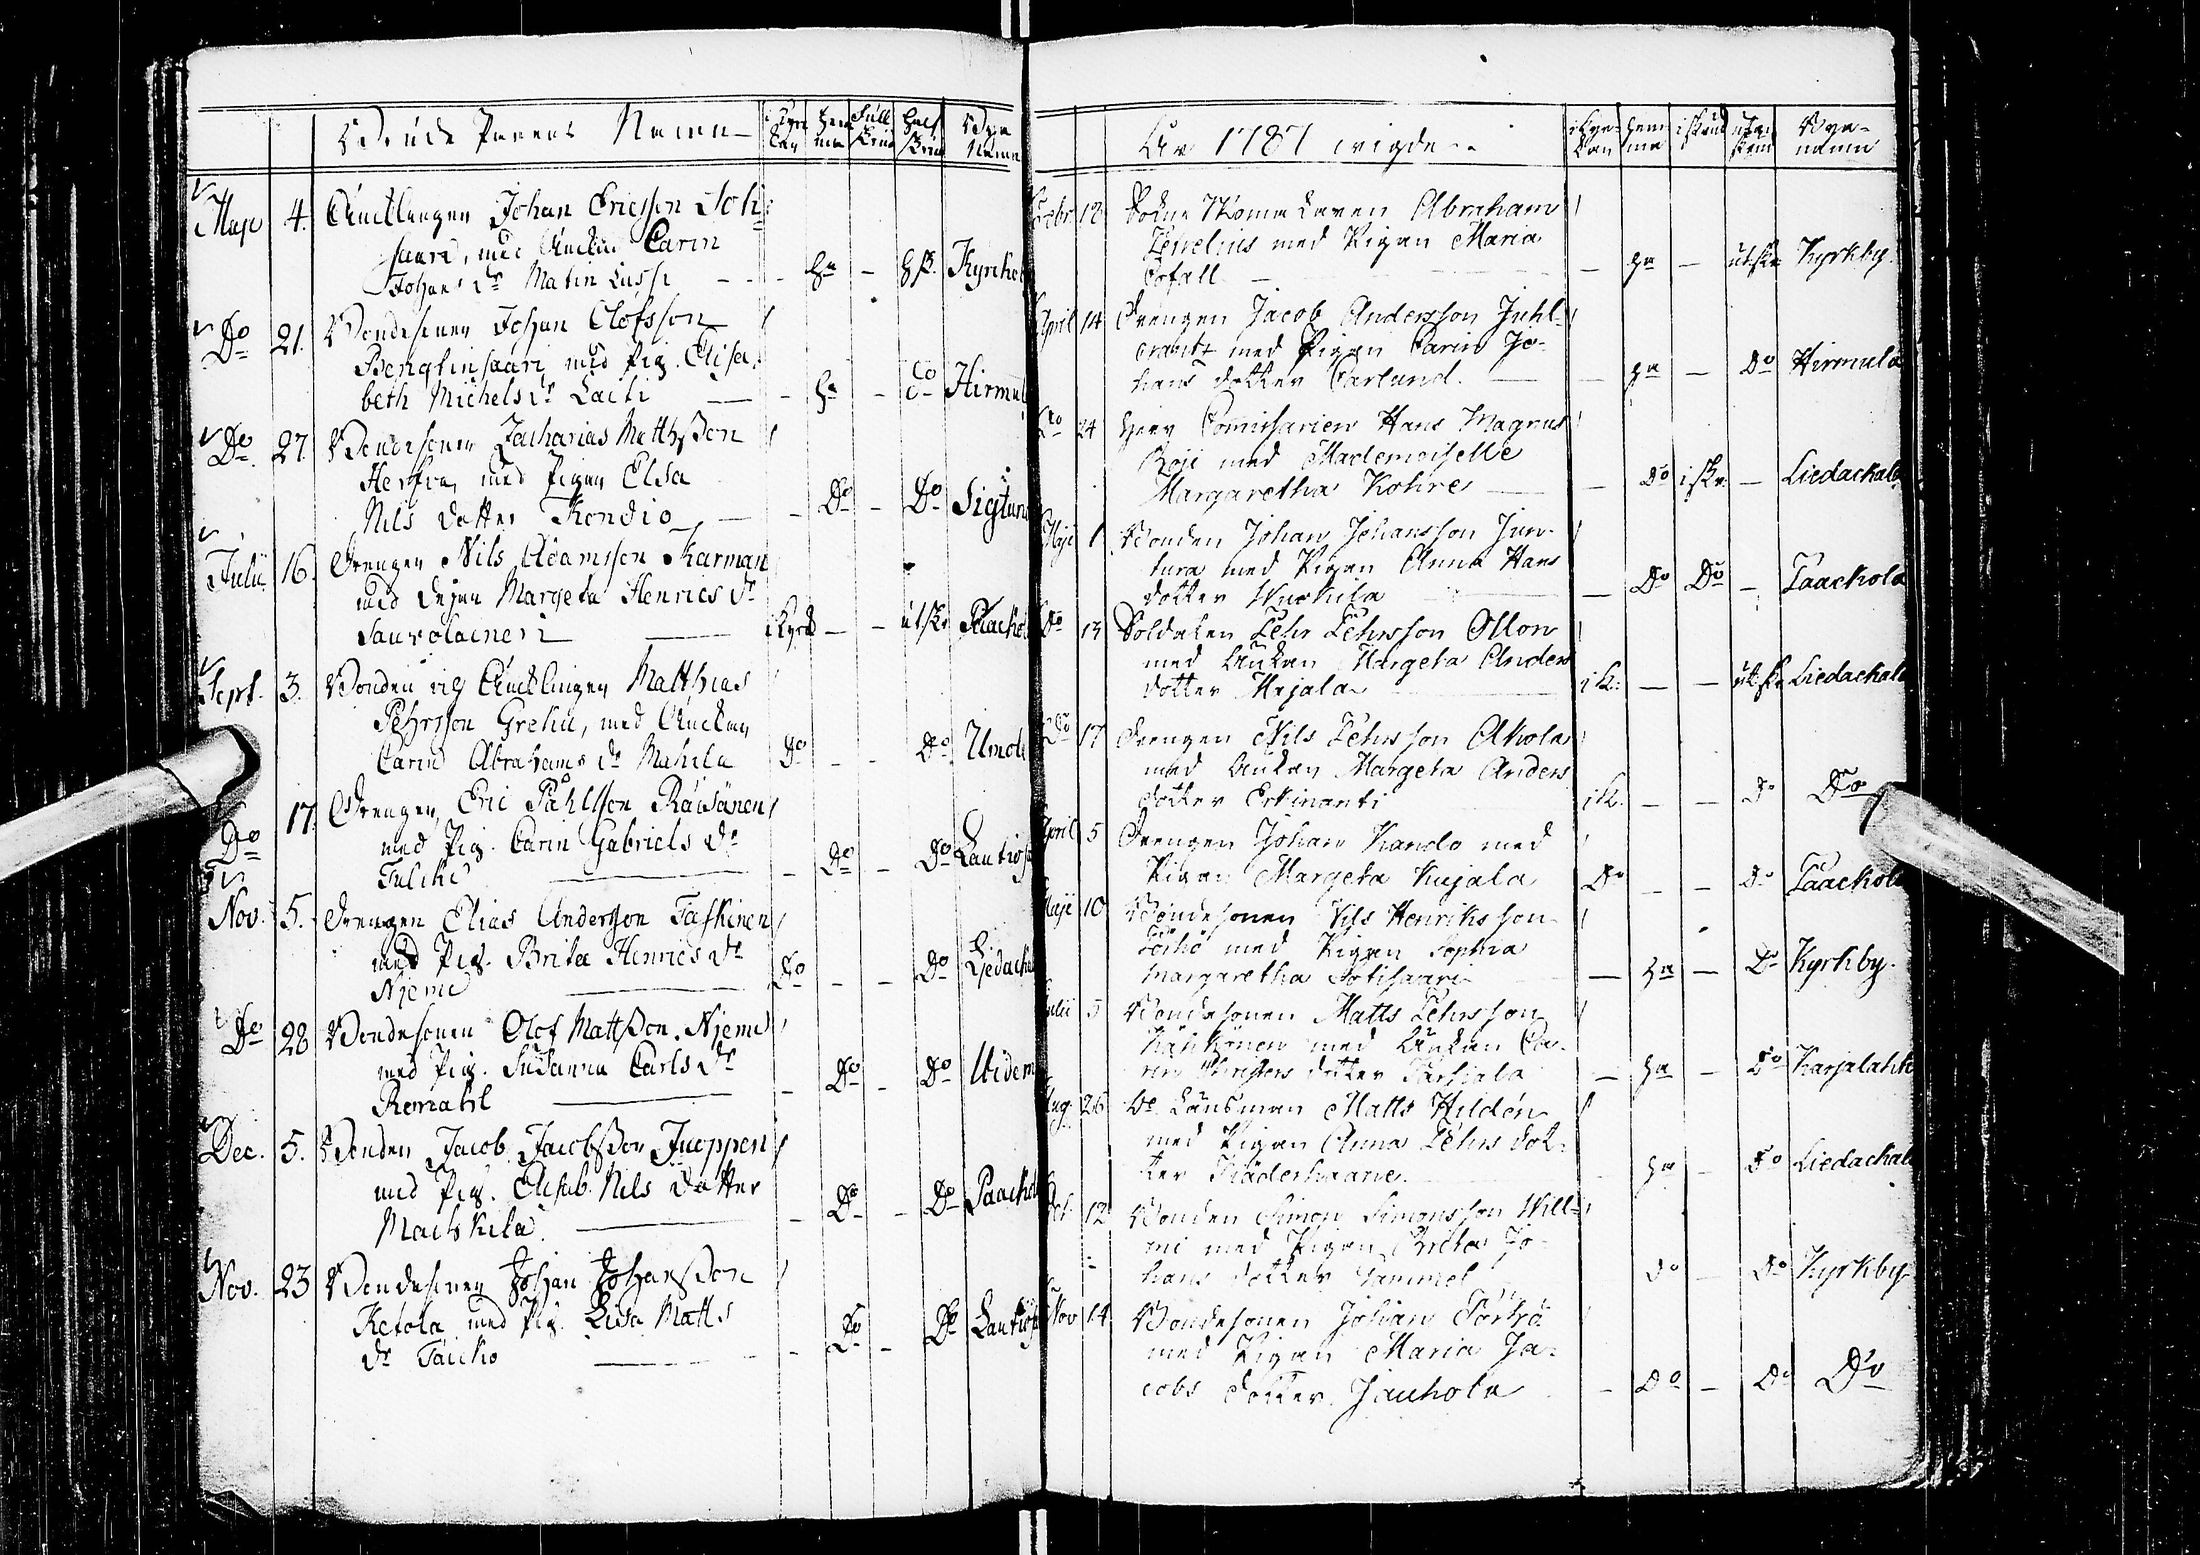 Wigde Parens Namn
i Kyrkan Hemma Full skrud Half skrud Byanamn
Maji 4. Änklingen Johan Ericsson Soti=
saari, med Änckan Carin
Johans dr Matin Lussi - - ha - h sk. Kyrckeb
Do 21. Bondesonen Johan Olofsson
Bengtinsaari med Pig. Elisa=
beth Michels dr Laiti - ha - Do Hirmul
Do 27. Bondesonen Zacharias Mattsson
Herfva, med Pigan Elsa
Nils dotter Kondio - Do - Do Sigtuna
Julii 16. Drengen Nils Adamsson Karman
med Dejan Margeta Henrics dr
Sauvolainen i Kyrk - - utsk. Paackol
Sept. 3. Bonden och Änklingen Matthias
Pehrsson Grehu, med Änckan
Carin Abrahams dr Mahila Do - - Do Umola
Do 17. Drengen, Eric Påhlsson Räisänen
med Pig. Carin Gabriels dr
Tulcki - Do - Do Lautios
Nov. 5. Drengen Elias Andersson Taskinen
med Pig. Brita Henrics dr
Njemi Do - - Do Liedacka
Do 28 Bondesonen Olof Mattsson Njemi
med Pig. Susanna Carls dr
Remahl - Do - Do Uidem
Dec. 5. Bonden Jacob Jacobsson Jueppen
med Pig. Elisab. Nils dotter
Matskila - Do - Do Paackol
Nov. 23 Bondesonen Johan Johansson
Ketola med Pig. Lisa Matts
dr Taucko - Do - Do Lautios
År 1787 wigde
i Kyrkan hemma i skrud utan skrud Byanamn
Febr. 18 Sockne Skomakaren Abraham
Zenelius med Pigan Maria
Orfall - ha - utskr Kyrkby
April 14 Drengen Jacob Andersson Juhl=
crantz med Pigan Carin Jo=
hans dotter Carlund. - ha - Do Hirmula
Do 24 Herr Commissarien Hans Magnus
Roji med Mademoiselle
Margaretha Kohre - Do i skr. - Liedackala
Maji 1 Bonden Johan Johansson Jun=
tura med Pigan Anna Hans
dotter Wuokila - Do Do - Paackola
Do 13 Soldaten Pehr Pehrsson Ollon
med Änkan Margeta Anders
dotter Majala i K. - - utskr Liedackala
Do 17 Drengen Nils Pehrsson Akola
med Änkan Margeta Anders
dotter Erkinanti i K. - - Do Do
April 5 Drengen Johan Kando med
Pigan Margeta Kujala Do - - Do Paackola
Maji 10 Bondesonen Nils Henriksson
Törhö med Pigan Sophia
Margaretha Sotisaari - ha - Do Kyrkby.
Julii 5 Bondesonen Matts Pehrsson
Känkönen med Änkan Ca=
rin Christers dotter Parkiala - ha - Do Karjalahti
Aug. 26 Länsman Matts Hildén
med Pigan Anna Pehrs dot=
ter Träderhaane. - ha - Do Liedackala
Oct. 12 Bonden Simon Simonsson Will=
mi med Pigan Brita Jo=
hans dotter Sammel Do - Do Kyrkby
Nov 14 Bondesonen Johan Törhö
med Pigan Maria Ja=
cobs dotter Jauhola - Do - Do Do